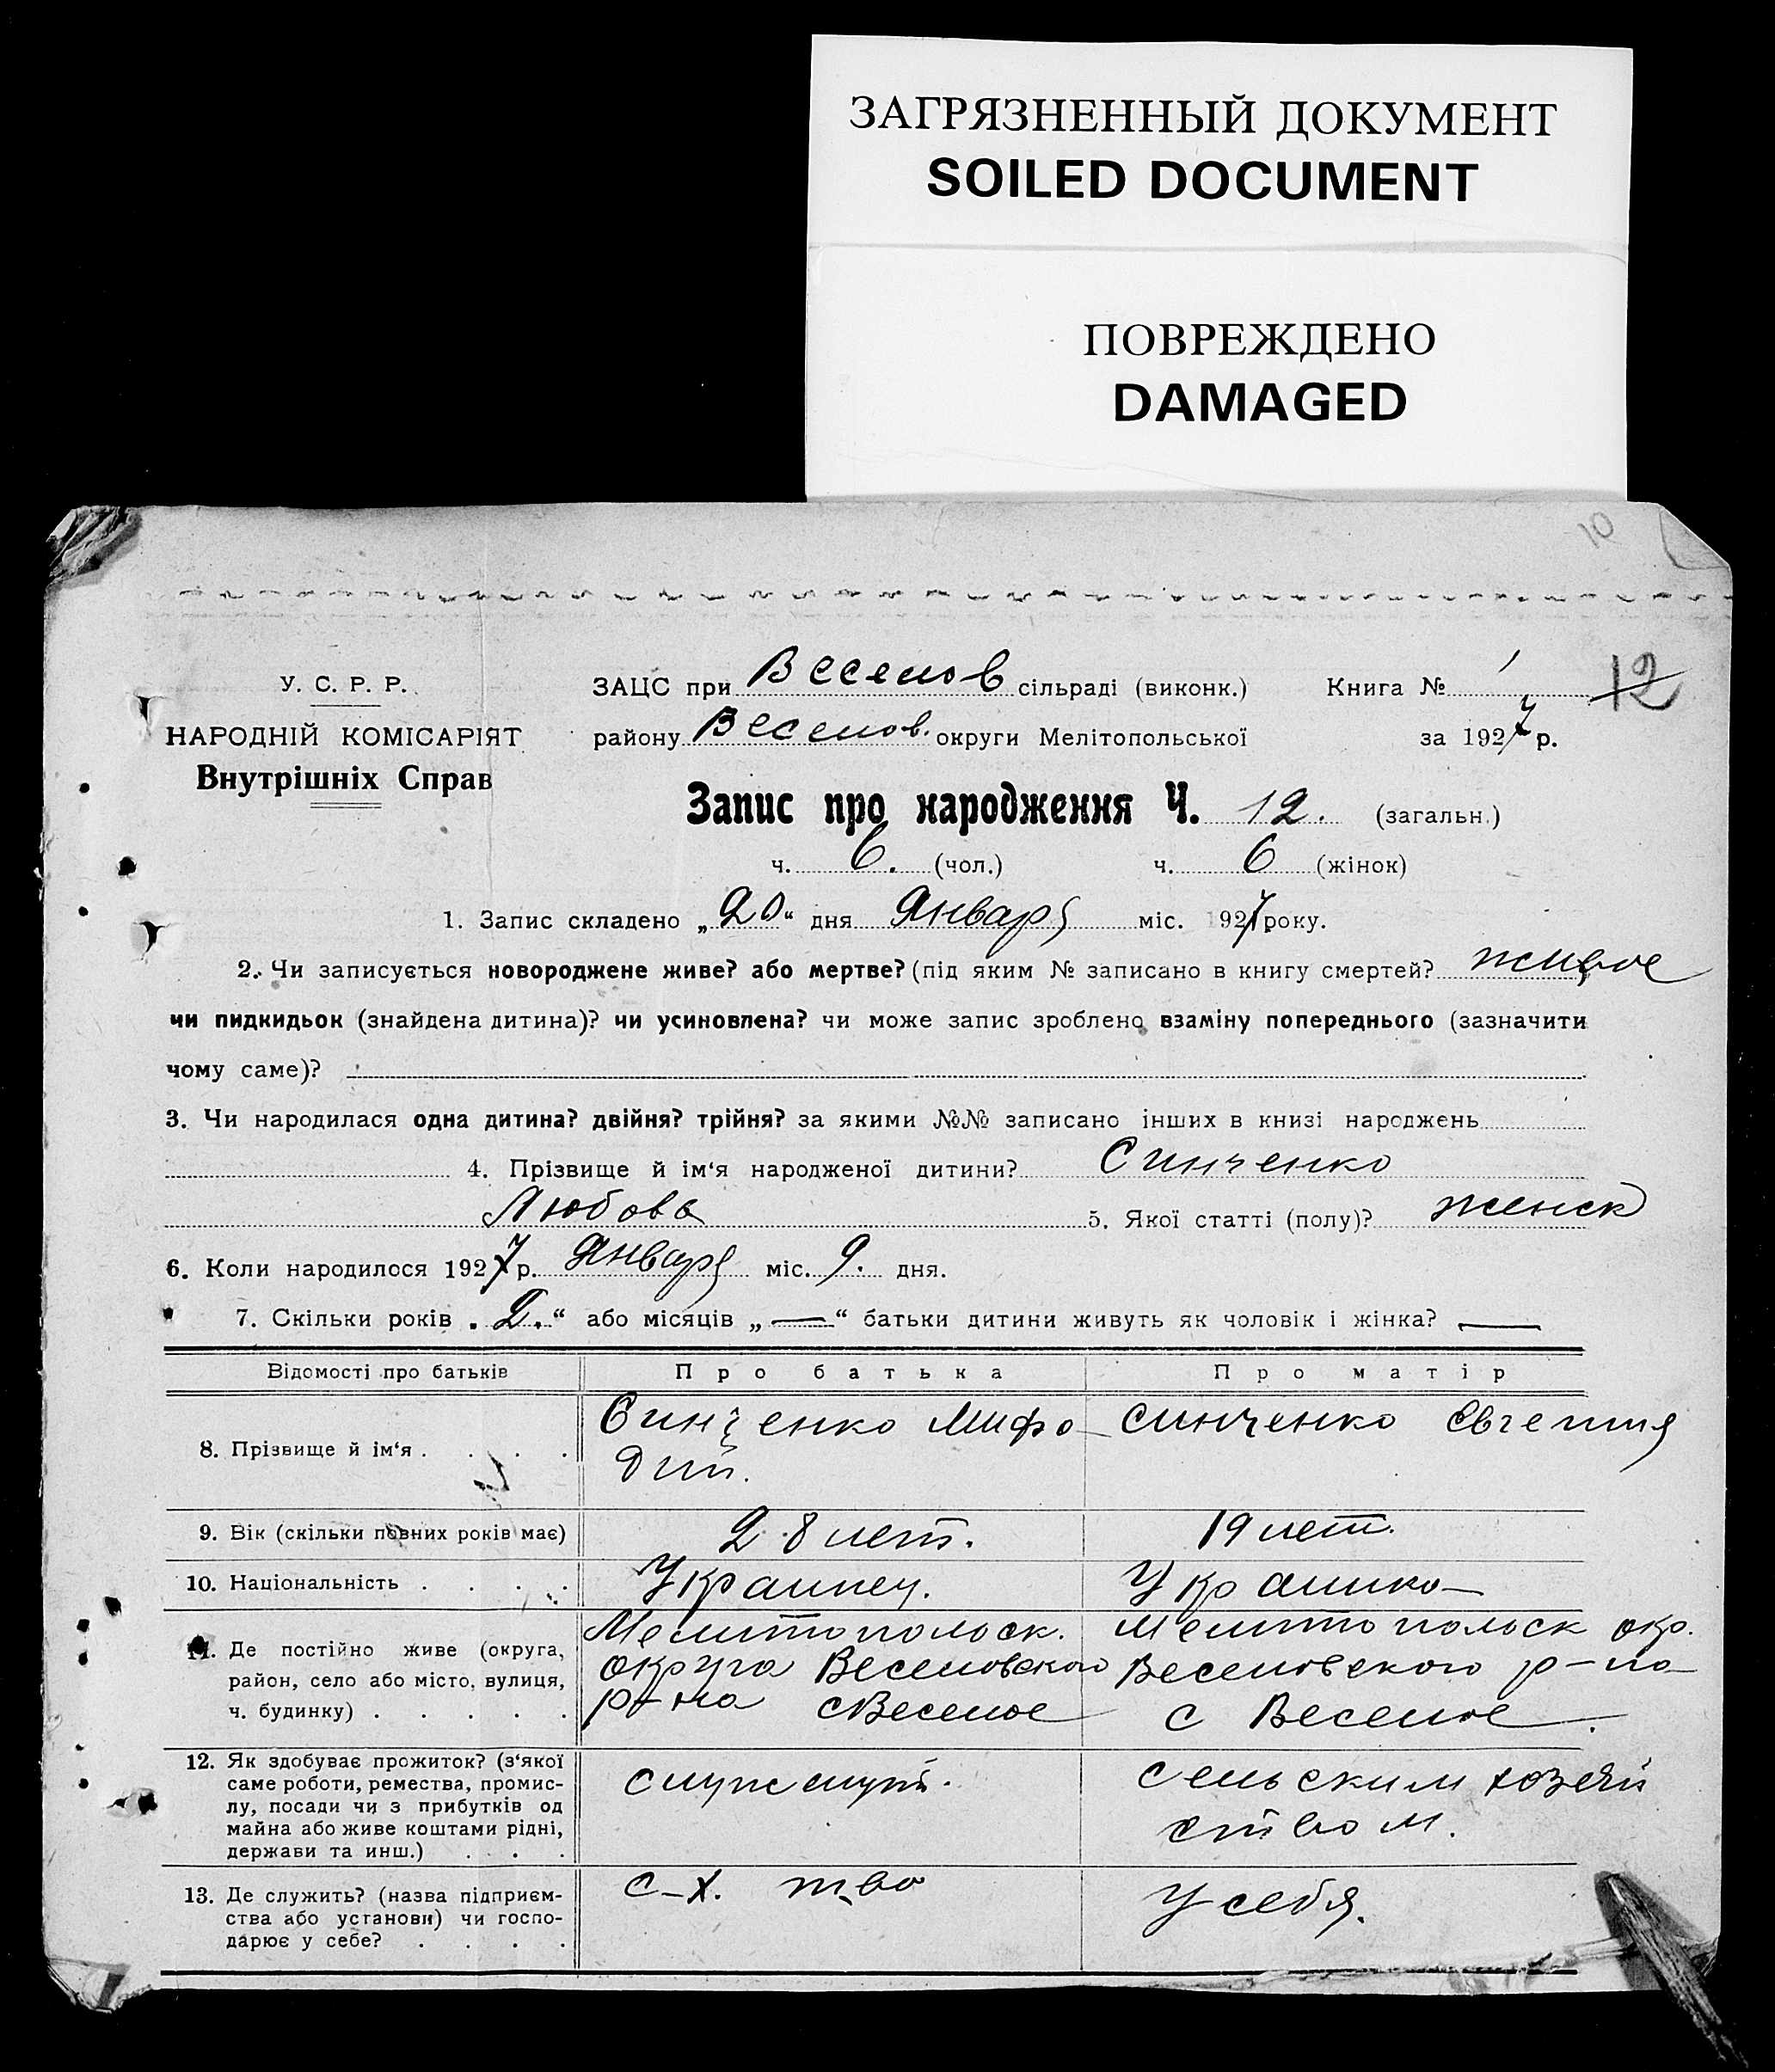 ЗАГРЯЗНЕННЫЙ ДОКУМЕНТ
SOILED DOCUMENT
ПОВРЕЖДЕНО
DAMAGED
10
У. С. Р. Р.
НАРОДНІЙ КОМІСАРІЯТ
Внутрішніх Справ
ЗАЦС при Веселов сільраді (виконк.) Книга № 1 12
району Веселов. округи Мелітопольської за 1927 р.
Запис про народження Ч. 12. (загальн.)
ч. 6. (чол.) ч. 6 (жінок)
1. Запис складено „20“ дня Января міс. 1927 року.
2. Чи записується новороджене живе? або мертве? (під яким № записано в книгу смертей? живое
чи пидкидьок (знайдена дитина)? чи усиновлена? чи може запис зроблено взаміну попереднього (зазначити
чому саме)?
3. Чи народилася одна дитина? двійня? трійня? за якими №№ записано інших в книзі народжень
4. Прізвище й ім‘я народженої дитини? Синченко
Любовь 5. Якої статті (полу)? женск
6. Коли народилося 1927 р. Января міс. 9. дня.
7. Скільки років „2.“ або місяців „—“ батьки дитини живуть як чоловік і жінка? —
Відомості про батьків Про батька Про матір
8. Прізвище й ім‘я . . . . Синченко Мифо- Синченко Евгения
дий.
9. Вік (скільки повних років має) 28 лет. 19 лет.
10. Національність . . . . Украинец. Украинка
11. Де постійно живе (округа, Мелитопольск. Мелитопольск окр.
район, село або місто, вулиця, округа Веселовского Веселовского р-на
ч. будинку) . . . . . р-на с Веселое с Веселое.
12. Як здобуває прожиток? (з‘якої служащий. Сельским хозяй
саме роботи, ремества, промис- ством.
лу, посади чи з прибутків од
майна або живе коштами рідні,
держави та инш.) . . .
13. Де служить? (назва підприєм- с-х. т-во У себя.
ства або установи) чи госпо-
дарює у себе? . . . .